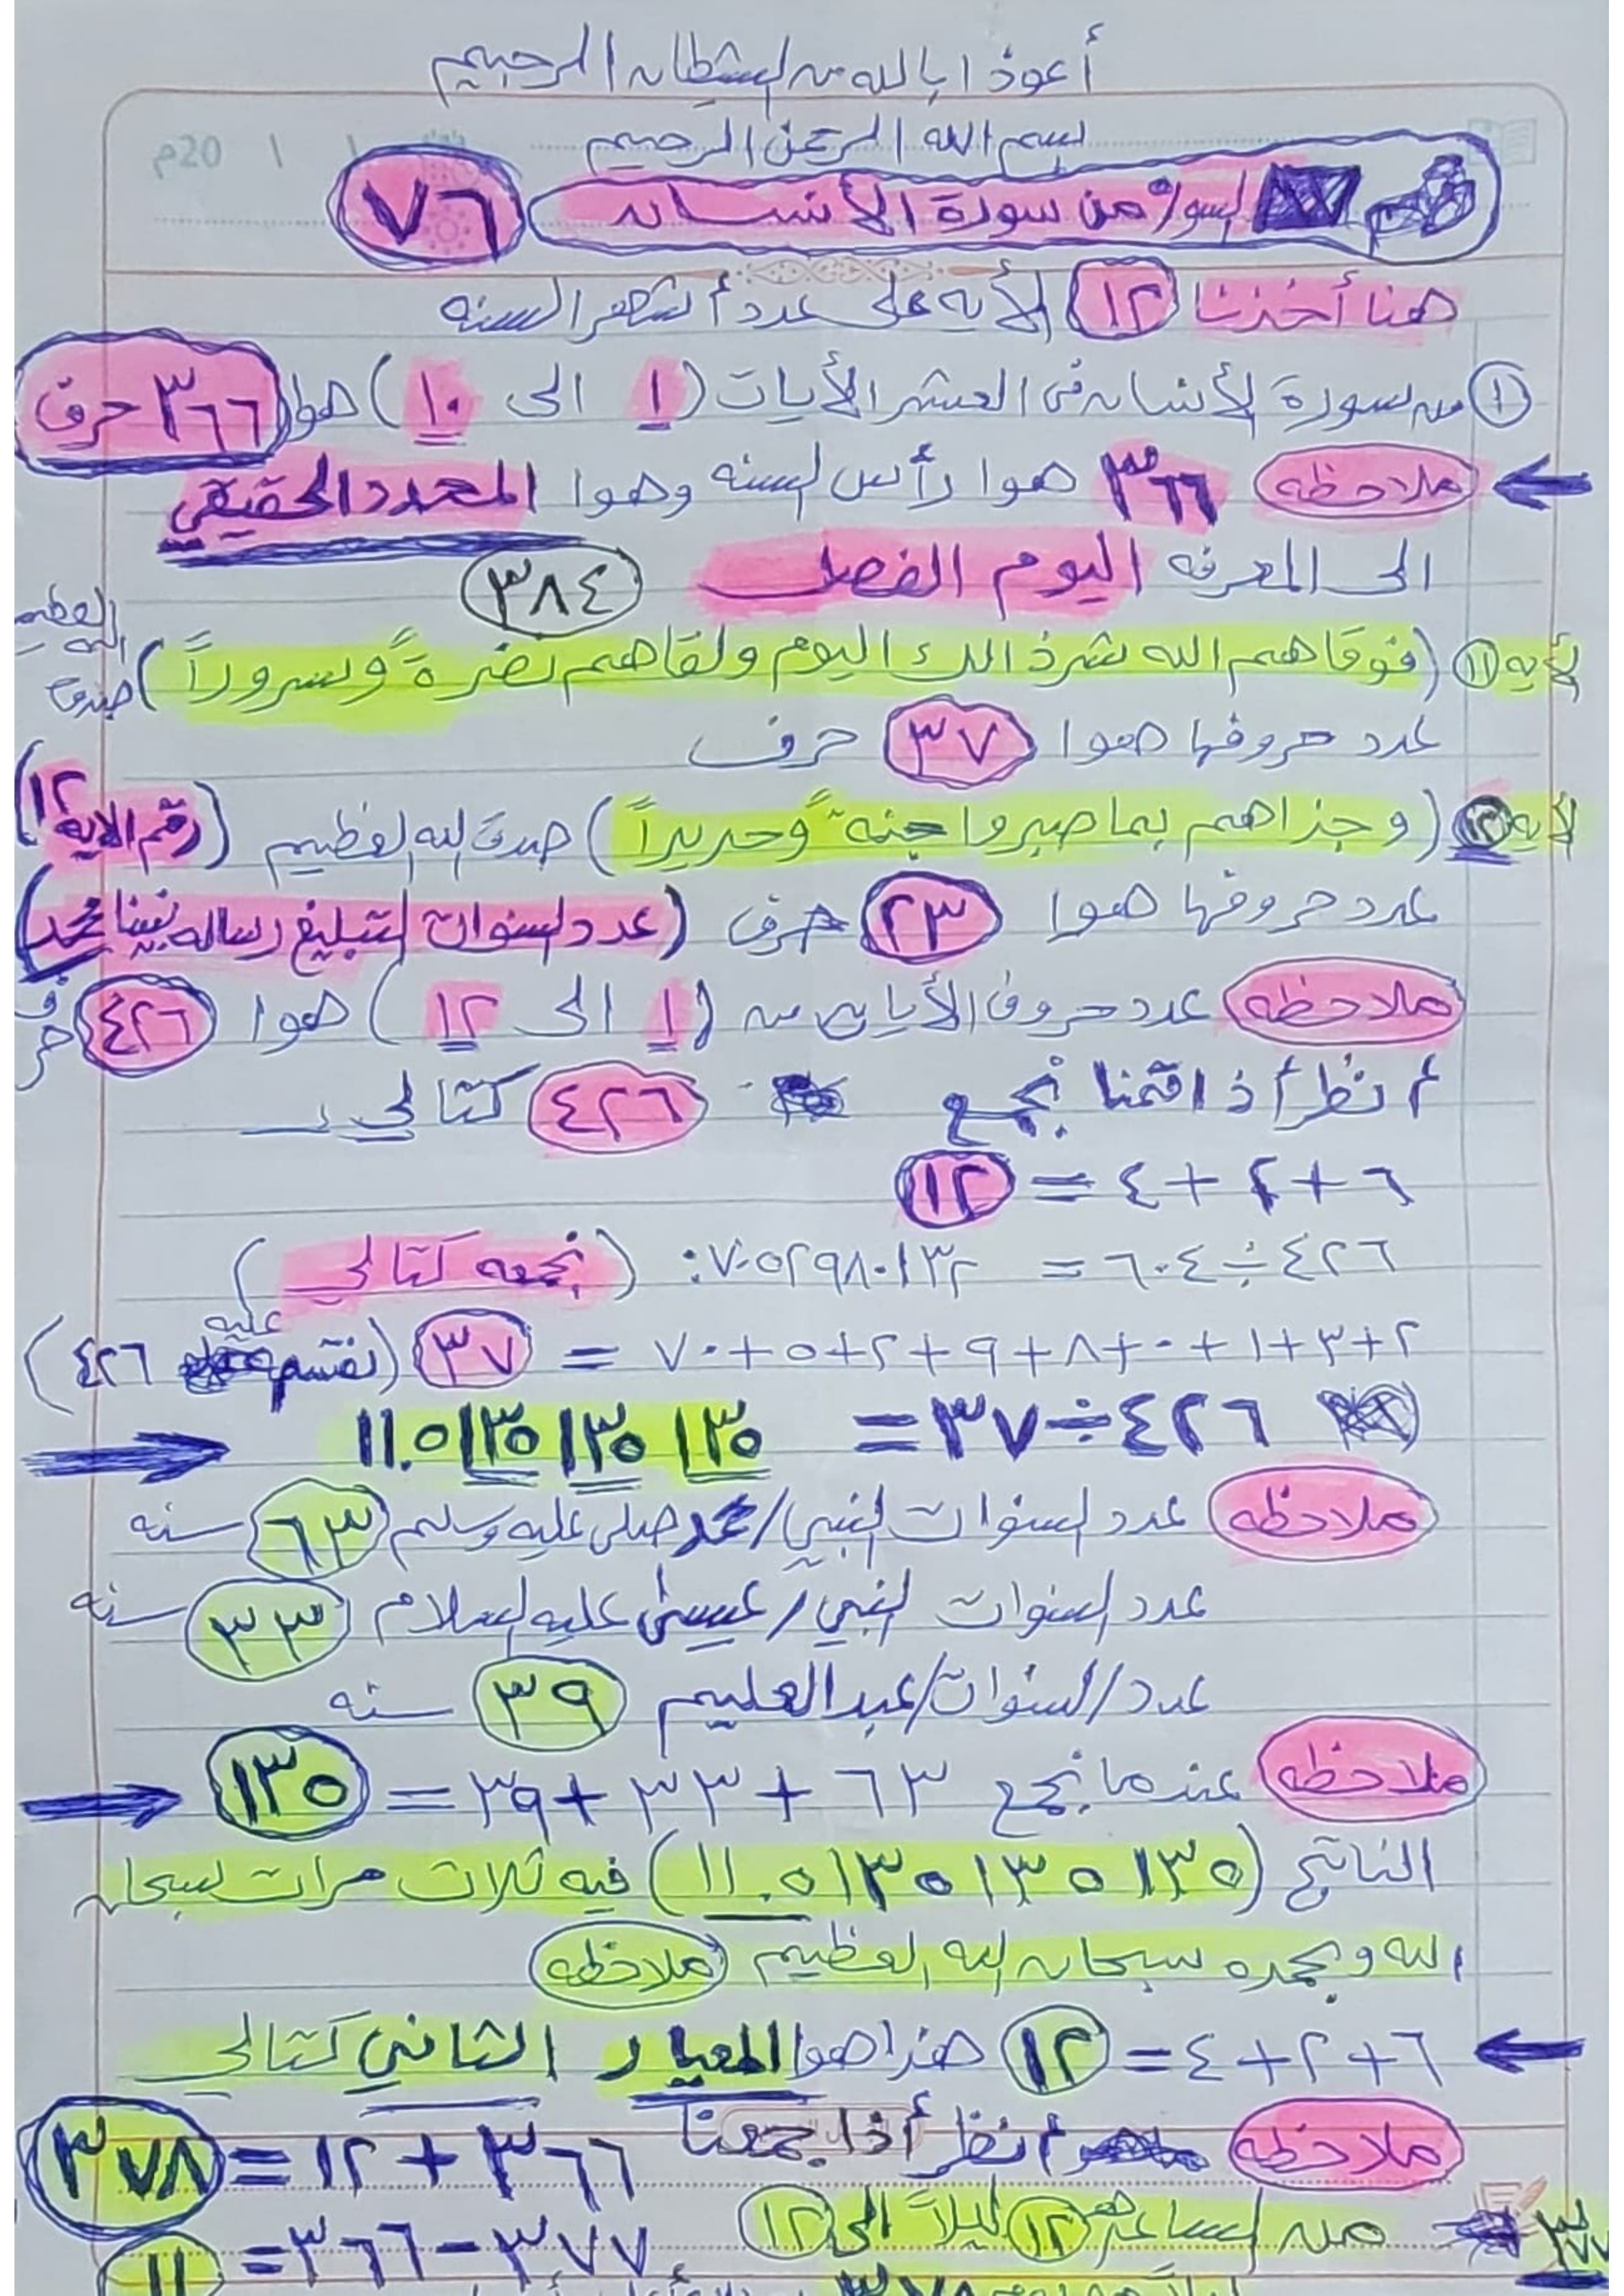 أعوذ ابالله من الشيطان الرجيم
بسم الله الرحمن الرحيم
من سورة الأنسان ٧٦
هنا أخذنا ١٢ الأيه على عدد أشهر السنه
١ من سورة الأنسان في العشر الأيات (١ الى ١٠) هوا ٣٦٦ حرف
ملاحظه ٣٦٦ هوا رأس السنه وهوا المحدد الحقيقي
الى المعرفه اليوم الفصل ٣٨٤
لأيه ١١ (فوقاهم الله شرذالك اليوم ولقاهم نضرةً وسروراً) صدق الله العظيم
عدد حروفها هوا ٣٧ حرف
لأيه ١٢ (وجزاهم بما صبروا جنه وحريراً) صدق الله العظيم (رقم الايه ١٢)
عدد حروفها هوا ٢٣ حرف (عدد السنوات لتبليغ رساله نبينا محمد)
ملاحظه عدد حروف الأيات من (١ الى ١٢) هوا ٤٢٦ حرف
أنظر أذا قمنا بجمع ٤٢٦ كتالي
٦+٢+٤ = ١٢
٤٢٦÷٦٠٤ = ٧٠٥٢٩٨٠١٣٢. : (نجمعه كتالي)
٢+٣+١+٠+٨+٩+٢+٥+٧٠ = ٣٧ (نقسم عليه ٤٢٦)
٤٢٦÷٣٧ = ١١.٥١٣٥١٣٥١٣٥
ملاحظه عدد السنوات النبي/محمد صلى عليه وسلم ٦٣ سنه
عدد السنوات النبي/عيسى عليه السلام ٣٣ سنه
عدد/السنوات/عبدالعليم ٣٩ سنه
ملاحظه عندما نجمع ٦٣+٣٣+٣٩ = ١٣٥
الناتج (١١.٥١٣٥١٣٥١٣٥) فيه ثلاث مرات سبحان
الله وبحمده سبحان الله العظيم ملاحظه
٦+٢+٤ = ١٢ هذا هوا المعيار الثاني كتالي
ملاحظه أنظر أذا جمعنا ٣٦٦+١٢ = ٣٧٨
٣٧٧ من الساعه ١٢ ليلاً الى ١٢
٣٧٧-٣٦٦ = ١١